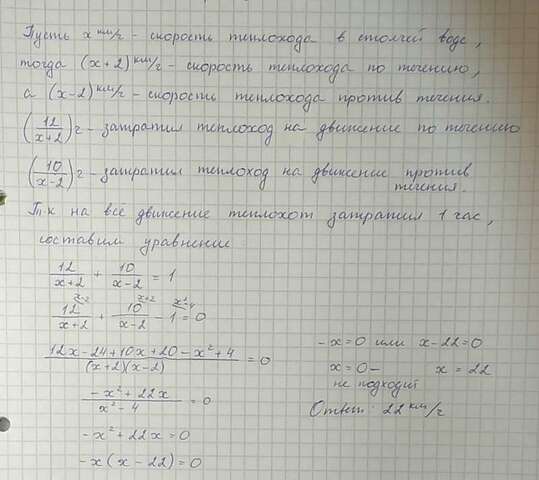 Пусть x км/г - скорость теплохода в стоячей воде,
тогда (x+2) км/г - скорость теплохода по течению,
а (x-2) км/г - скорость теплохода против течения.
(12/(x+2)) г - затратил теплоход на движение по течению
(10/(x-2)) г - затратил теплоход на движение против
течения.
Т.к на всё движение теплохот затратил 1 час,
составим уравнение
12/(x+2) + 10/(x-2) = 1
12/(x+2) + 10/(x-2) - 1 = 0
(12x-24+10x+20-x²+4)/((x+2)(x-2)) = 0
(-x²+22x)/(x²-4) = 0
-x²+22x=0
-x(x-22)=0
-x=0 или x-22=0
x=0- x=22
не подходит
Ответ: 22 км/г